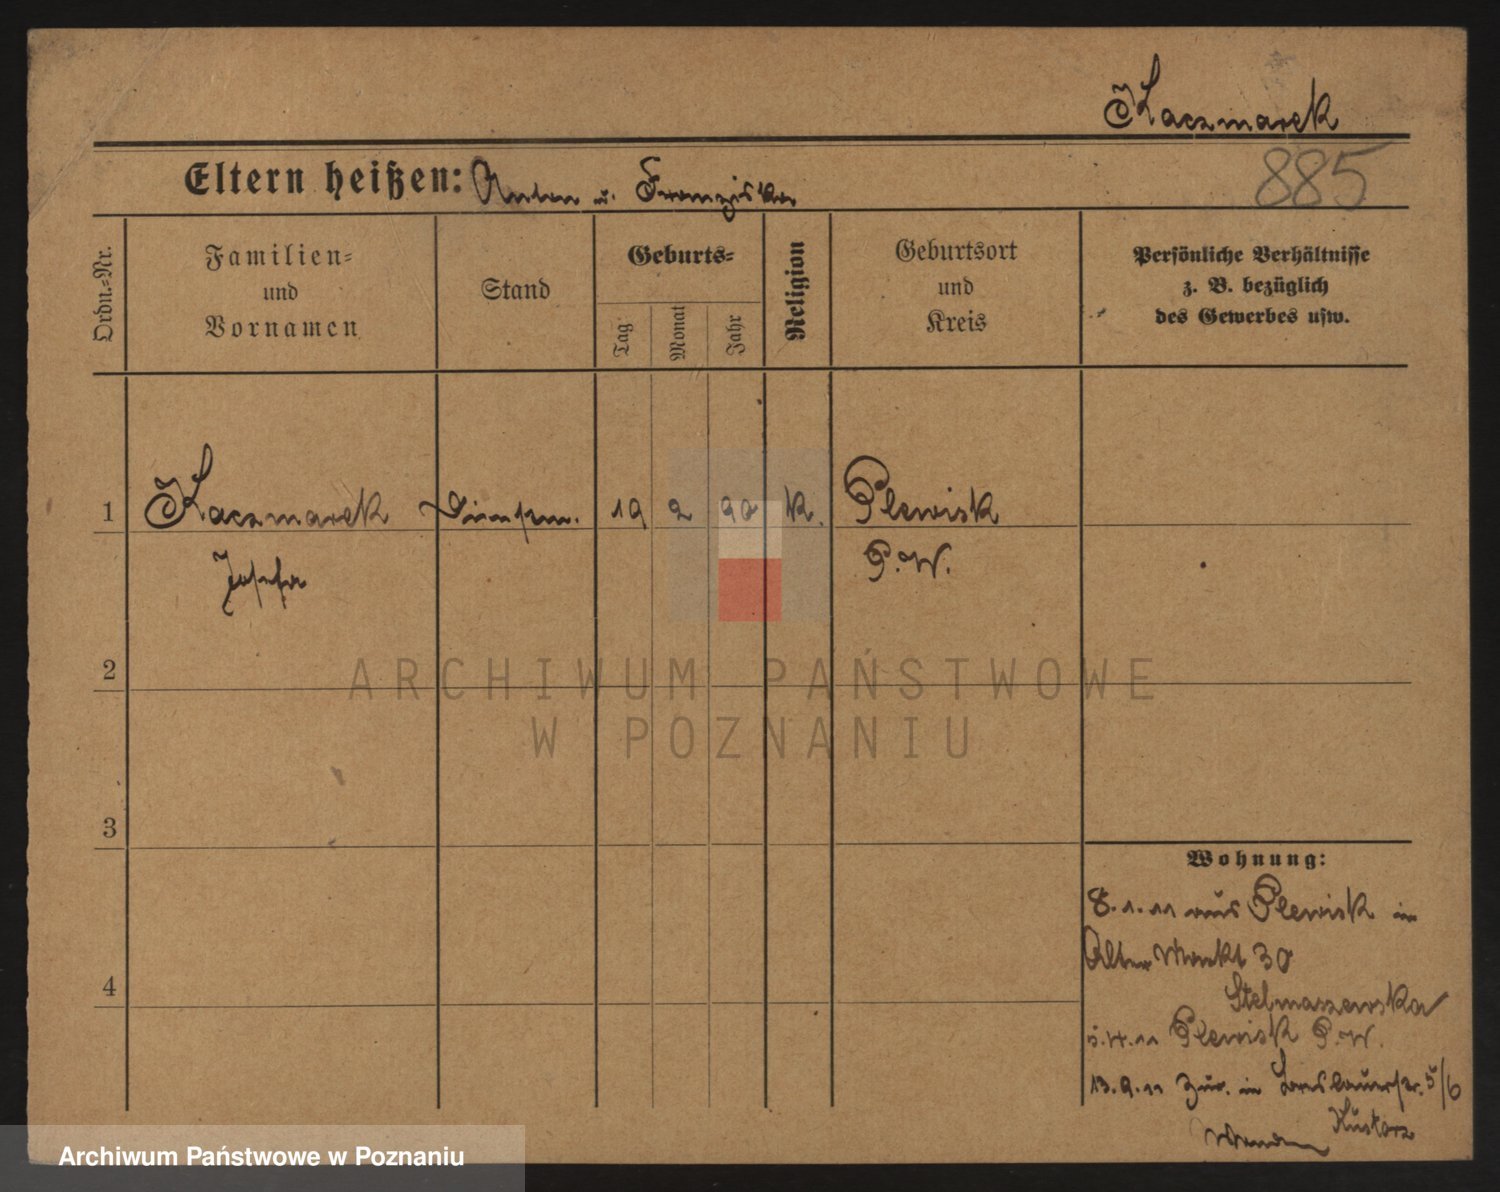 Kaczmarek
Eltern heißen: Anton u. Franziska
885
Ordn.-Nr.
Familien-
und
Vornamen
Stand
Geburts-
Tag
Monat
Jahr
Religion
Geburtsort
und
Kreis
Persönliche Verhältnisse
z. B. bezüglich
des Gewerbes usw.
1 Kaczmarek 19 2 90 K. Plewisk
Josefa P. W.
2
ARCHIWUM PAŃSTWOWE
W POZNANIU
3
Wohnung:
8.1.11 aus Plewisk in
Alter Markt 30
4
Stelmaszewska
5.4.11 Plewisk P. W.
13.9.11 Zur. in Breslauerstr. 5/6
Archiwum Państwowe w Poznaniu